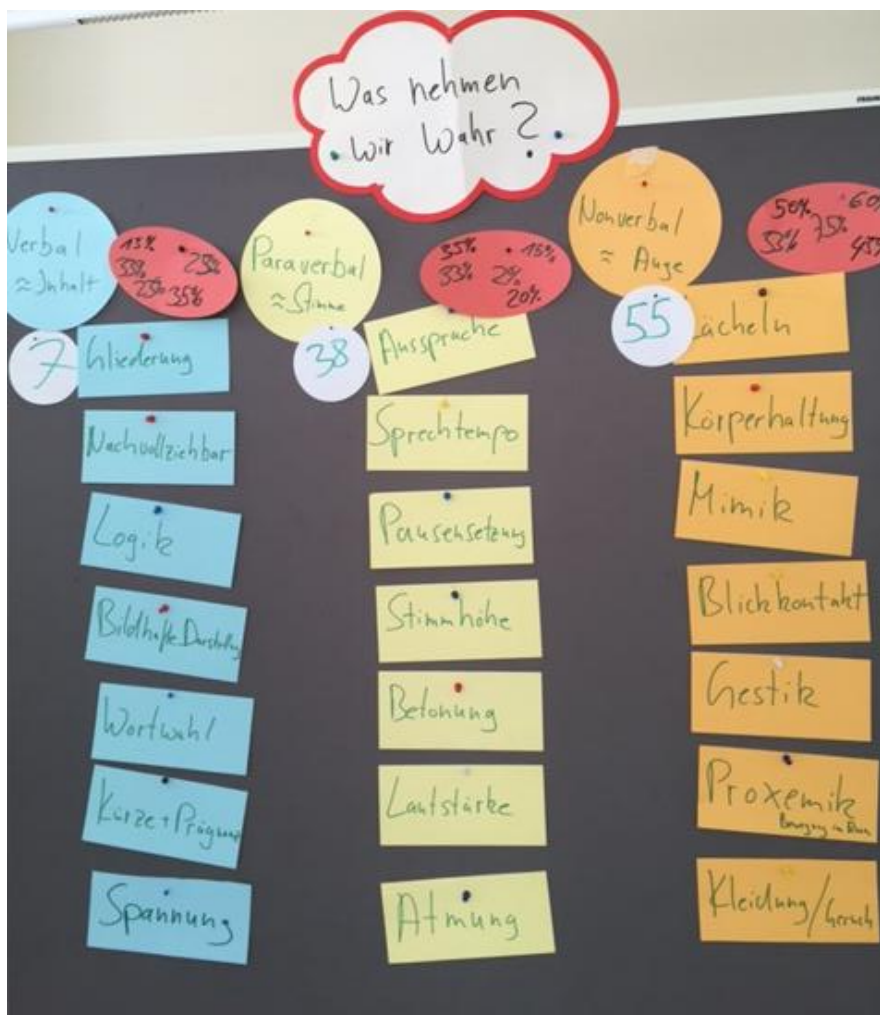 Was nehmen
wir Wahr?
Verbal
≈ Inhalt
15%
33%
25%
25%
35%
7
Gliederung
Nachvollziehbar
Logik
Bildhafte Darstellung
Wortwahl
Kürze + Prägnanz
Spannung
Paraverbal
≈ Stimme
35%
15%
33%
2%
20%
38
Aussprache
Sprechtempo
Pausensetzung
Stimmhöhe
Betonung
Lautstärke
Atmung
Nonverbal
≈ Auge
50%
60%
33%
75%
45%
55
Lächeln
Körperhaltung
Mimik
Blickkontakt
Gestik
Proxemik
Bewegung im Raum
Kleidung/Geruch